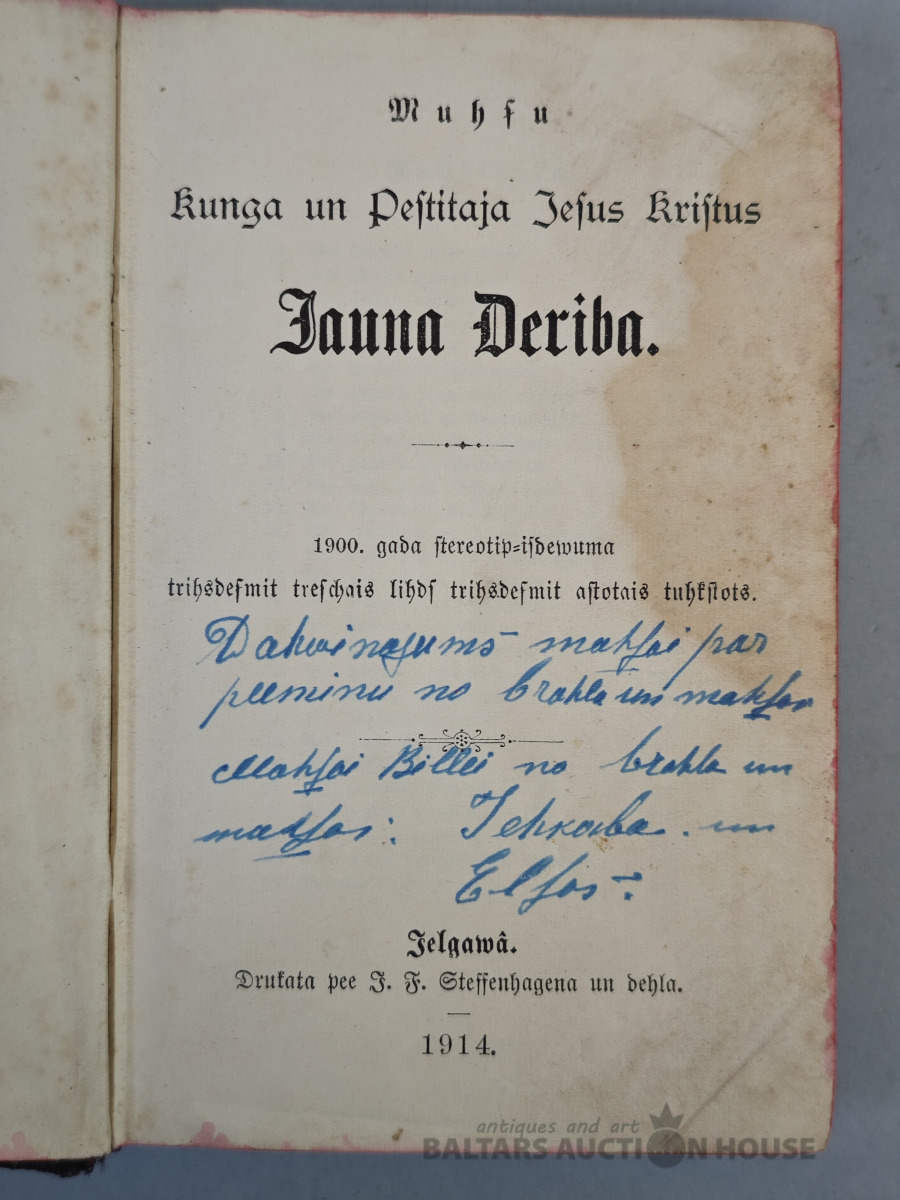 Muhſu
Kunga un Peſtitaja Jeſus Kriſtus
Jauna Deriba.
1900. gada ſtereotip=iſdewuma
trihsdeſmit treſchais lihdſ trihsdeſmit aſtotais tuhkſtots.
Dahwinajums mahſai par
peeminu no brahla un mahſas
Mahſai Billei no brahla un
mahſas: Jehkaba. un
Elſas:
Jelgawâ.
Drukata pee J. F. Steffenhagena un dehla.
1914.
antiques and art
BALTARS AUCTION HOUSE